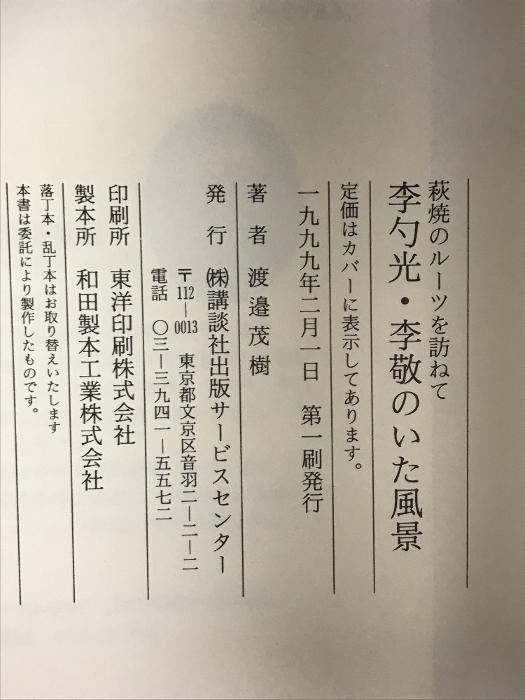 萩焼のルーツを訪ねて
李勺光・李敬のいた風景
定価はカバーに表示してあります。
一九九九年二月一日　第一刷発行
著者　渡邉茂樹
発行　㈱講談社出版サービスセンター
〒112─0013　東京都文京区音羽二─二─二
電話　〇三─三九四一─五五七二
印刷所　東洋印刷株式会社
製本所　和田製本工業株式会社
落丁本・乱丁本はお取り替えいたします
本書は委託により製作したものです。